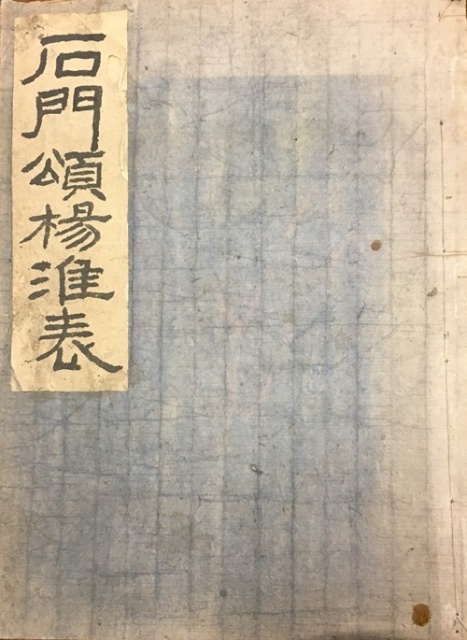 石門頌楊淮表